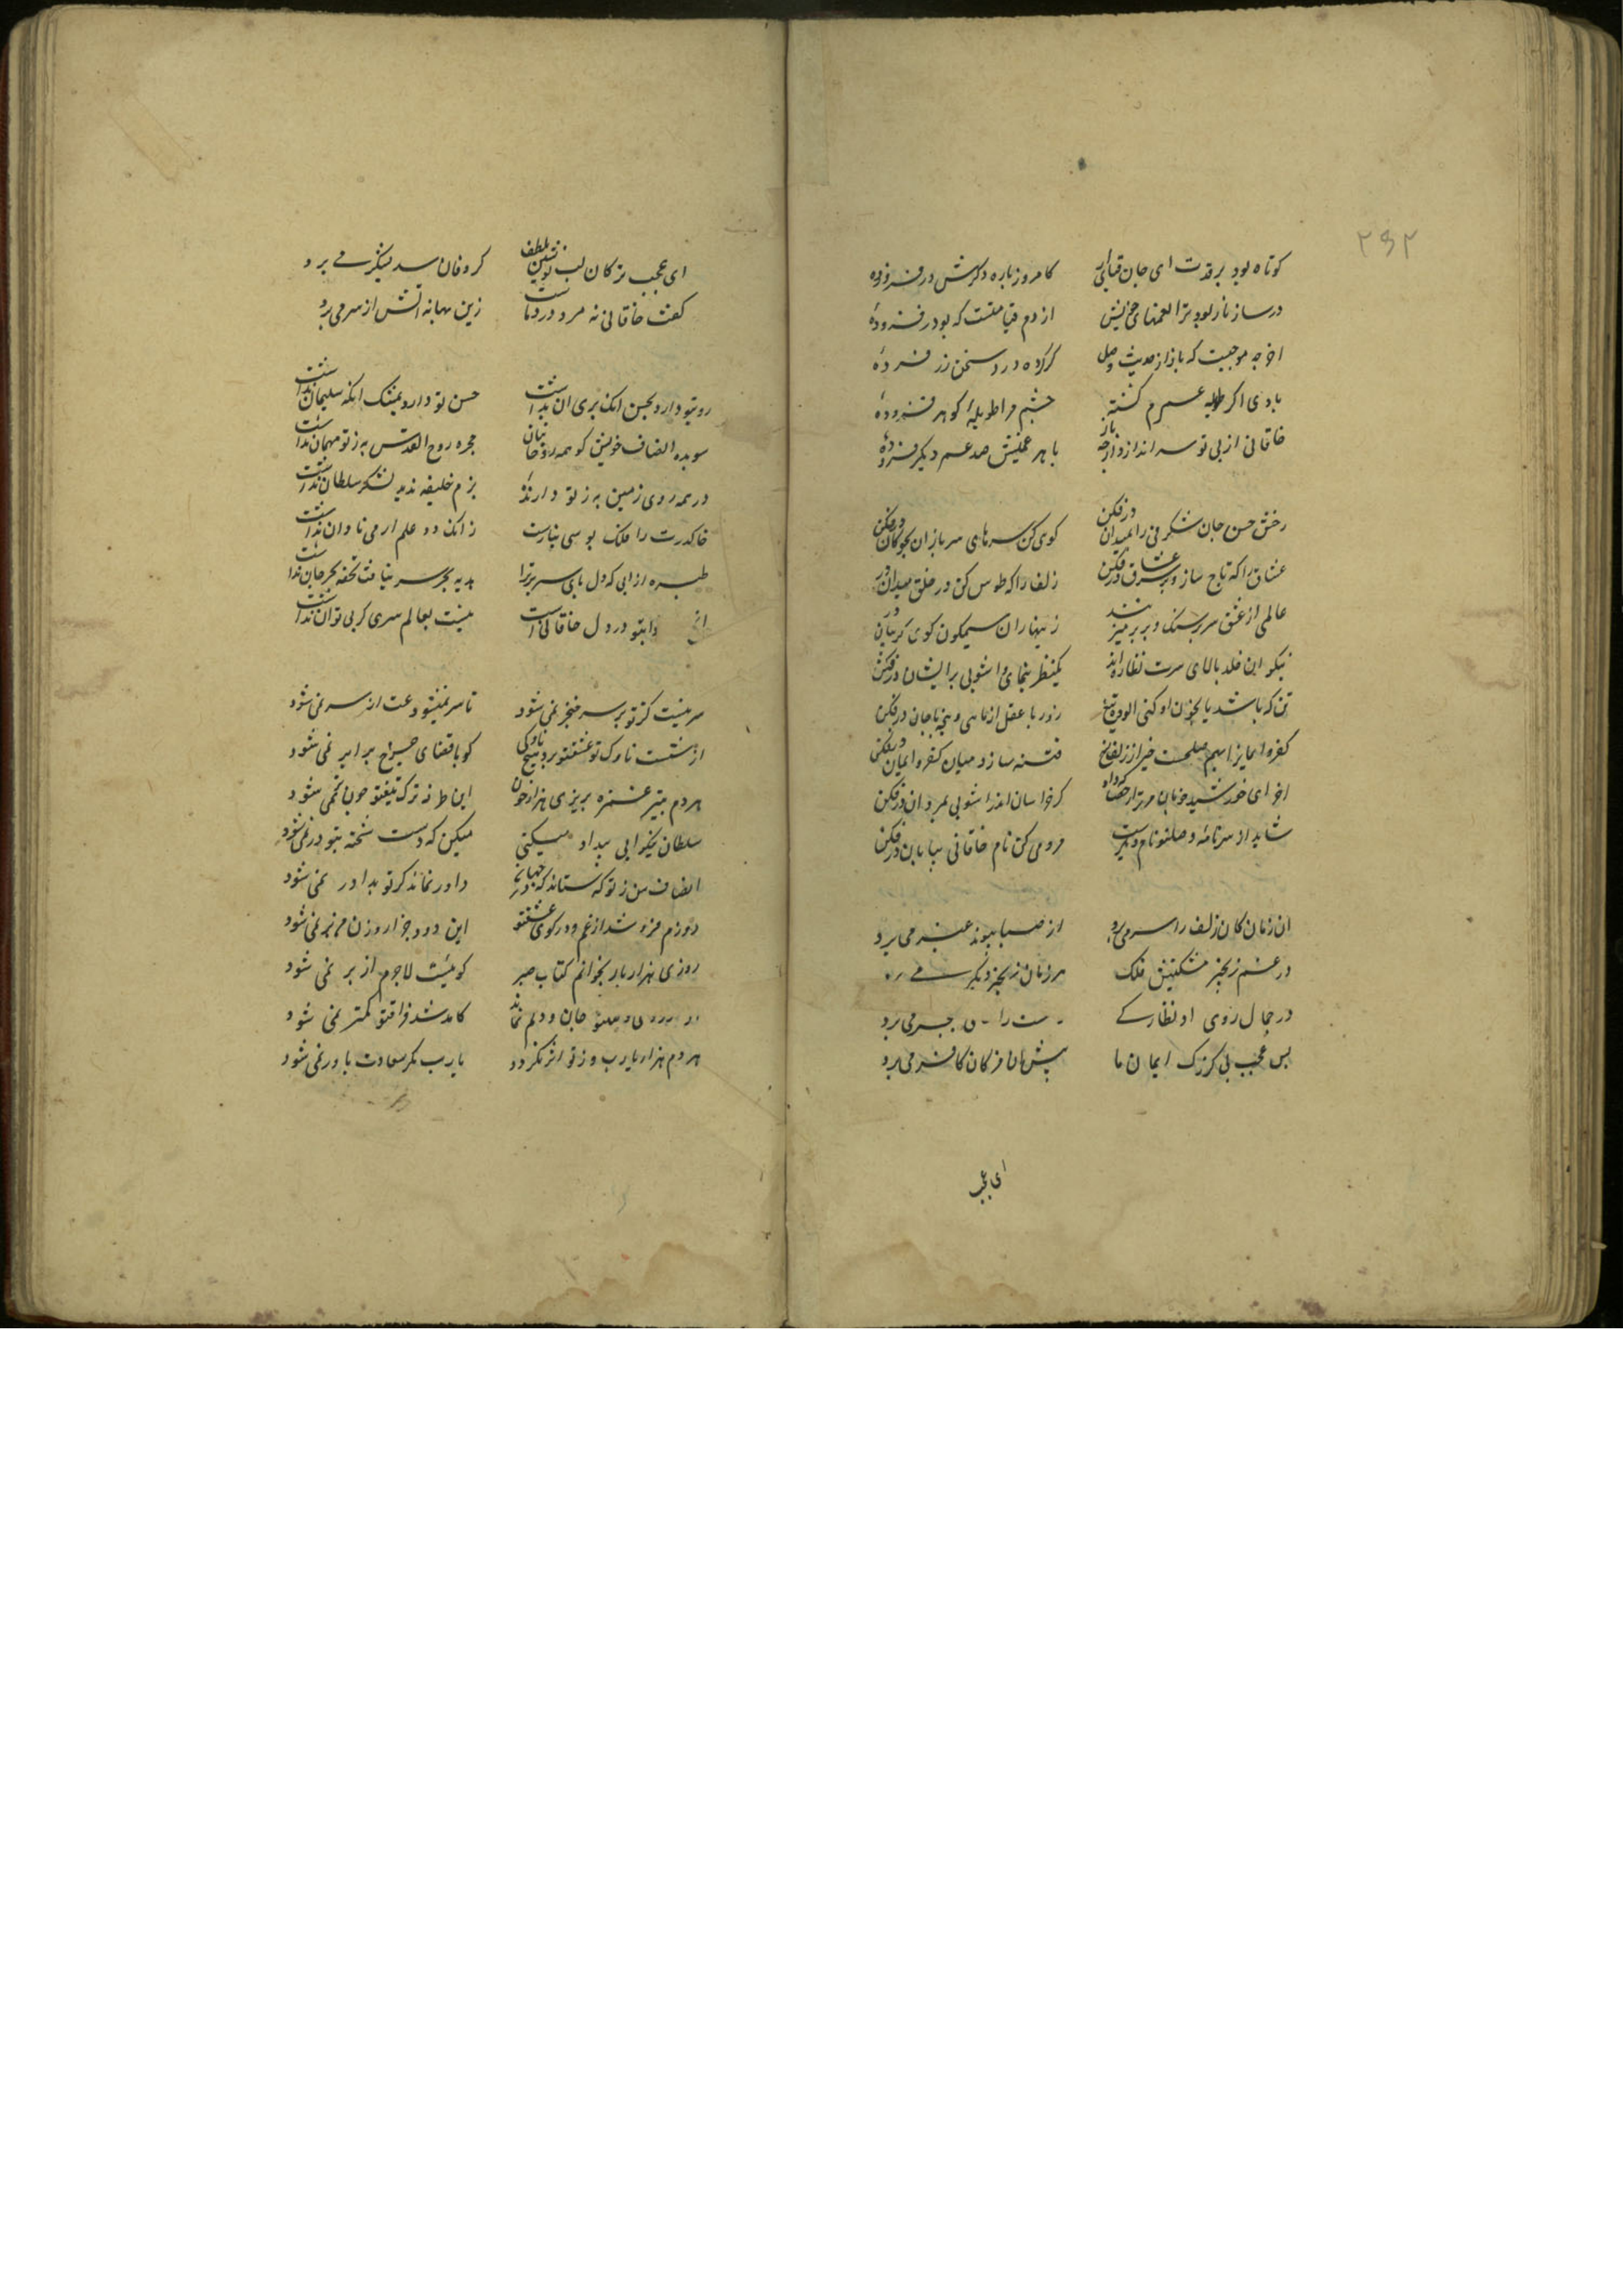 ۲۹۲
کوتاه بود بر قدت ای جان قبای ناز کامروز پاره دگرش در فزوده
در ساز ناز بود ترا نغمهای خوش از دم قیامتست که بود در فزوده
اخر چه موجبست که باز از حدیث وصل کم کرده در سخن زر فزوده
بادی اکر طویله عمرم کسسته چشم مرا طویله کوهر فزوده
خاقانی از پی تو سر اندازد ارچه باز با هر غمیش صد غم دیکر فزوده
رخش حسن جان شکرفی را بمیدان در فکن کوی کن سرهای سربازان بچوکان در فکن
عشاق را که تاج ساز و بر سر عشاق در فکن زلف را که طوس کن در حلق میدان در
عالمی از عشق سر بر سنک و بر بر میزنند زینهار ان سیمکون کوی کریبان در
نیکوان خلد بالای سرت نظاره اند یکنظر بنمای و اشوبی بر ایشان در فکن
تن که باشد یا بخون او کنی الوده تیغ زور با عقل ازمای و پنجه با جان در فکن
کفر و ایمان را بهم صلحست خیز از زلف و رخ فتنه ساز و میان کفر و ایمان در فکن
اخر ای خورشید خوبان مر ترا رخصت که داد کز خراسان اندر اشوبی بمردان در فکن
شاید از سرنامه وصلتو نام دیکریست مردمی کن نام خاقانی بپایان در فکن
ان زمان کان زلف را سر می برد از صبا پیوند عنبر می برد
در غم زنجیر مشکینش فلک هر زمان زنجیر دیکر می برد
در جمال روی او نظارکی ست را ن جبر می برد
بس عجب بی کز رک ایمان ما پیش مژکان کافر می برد
ای عجب
ای عجب ترکان لب نوشین بلطف کر وفان سد سکندر می برد
کفت خاقانی نه مرد درد ماست زین بهانه اتش از سر می برد
رویتو دارد بحسن انک پری ان نداشت حسن تو دارد بملک انکه سلیمان نداشت
سو بده انصاف خویش کز همه روحانیان حجره روح القدس به ز تو مهمان نداشت
در همه روی زمین به ز تو دارنده بزم خلیفه ندید لشکر سلطان نداشت
خاکدرت را ملک بوسی نیارست زانک دو علم ادمی تاوان نداشت
طیره از انی که دل پای سریر ترا هدیه بجز سر نیافت تحفه بجز جان نداشت
انچ دابتو در دل خاقانی است نیست بعالم سری کز پی تو ان نداشت
سر نیست کز تو بر سر خنجر نمی شود تا سر نمیشود غمت از سر نمی شود
از شست ناوک تو عشقتو بر دل هیچ ناوکی کو با قضای چرخ برابر نمی شود
هر دم بتیر غمزه بریزی هزار خون این طرفه ترکه تیغتو خود تر نمی شود
سلطان نیکوانی بیداد میکنی میکن که دست شحنه بتو در نمی شود
انصاف من ز تو که ستاند که در جهان داور نماند کز تو بداور نمی شود
دوزم فرو شد از غم و در کوی عشقتو این دود جز ز روزن من بر نمی شود
روزی هزار بار بخوانم کتاب صبر کوئیست لاجرم از بر نمی شود
در ارزوی وصلتو جان و دلم نماند کامد شد فراقتو کمتر نمی شود
هر دم هزار یارب و ز تو اثر نکردد یارب مکر سعادت یاور نمی شود